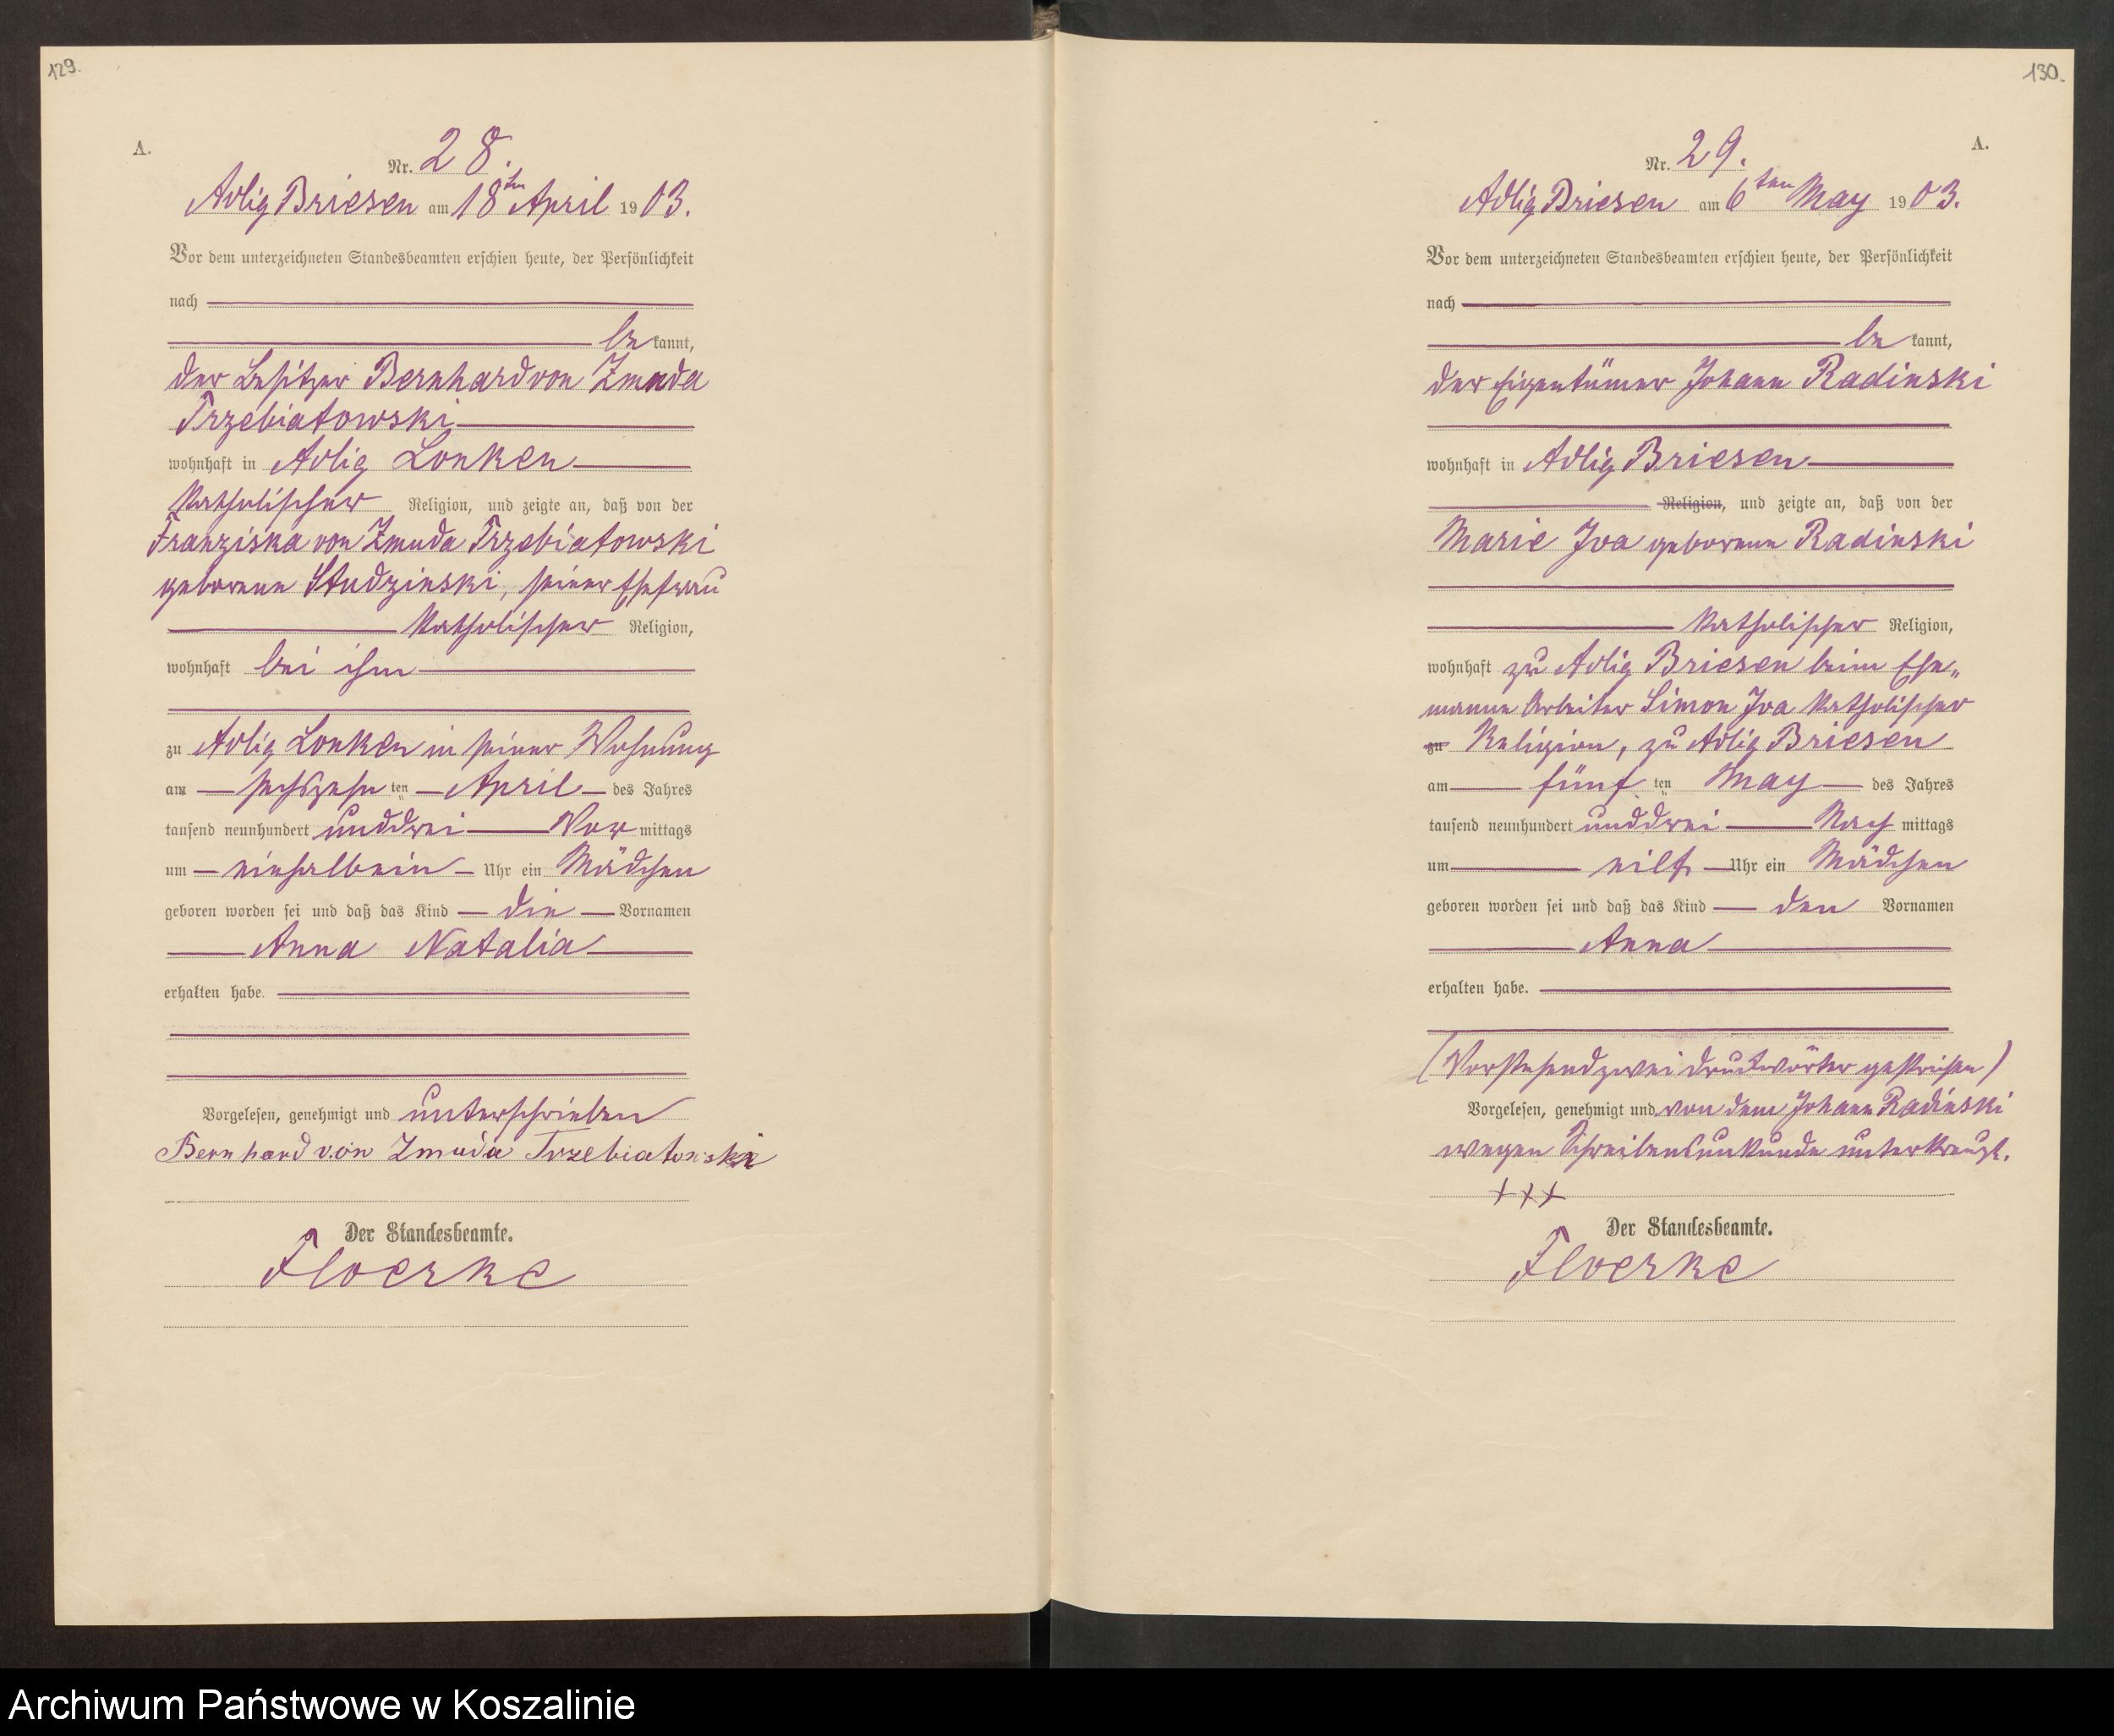 129.
A.
Nr. 28.
Adlig Briesen am 18ten April 1903.
Vor dem unterzeichneten Standesbeamten erschien heute, der Persönlichkeit
nach
bekannt,
der Besitzer Bernhard von Zmuda
Trzebiatowski
wohnhaft in Adlig Lonken
katholischer Religion, und zeigte an, daß von der
Franziska von Zmuda Trzebiatowski
geborene Studzinski, seiner Ehefrau
katholischer Religion,
wohnhaft bei ihm
zu Adlig Lonken in seiner Wohnung
am sechszehnten April des Jahres
tausend neunhundert unddrei Vormittags
um einhalbein Uhr ein Mädchen
geboren worden sei und daß das Kind die Vornamen
Anna Natalia
erhalten habe.
Vorgelesen, genehmigt und unterschrieben
Bernhard von Zmuda Trzebiatowski
Der Standesbeamte.
Floerke
130.
A.
Nr. 29.
Adlig Briesen am 6ten May 1903.
Vor dem unterzeichneten Standesbeamten erschien heute, der Persönlichkeit
nach
bekannt,
der Eigentümer Johann Radinski
wohnhaft in Adlig Briesen
Religion, und zeigte an, daß von der
Marie Jva geborene Radinski
katholischer Religion,
wohnhaft zu Adlig Briesen beim Ehe„
manne Arbeiter Simon Jva katholischer
zu Religion, zu Adlig Briesen
am fünften May des Jahres
tausend neunhundert unddrei Nachmittags
um eilf Uhr ein Mädchen
geboren worden sei und daß das Kind den Vornamen
Anna
erhalten habe.
(Vorstehend zwei Druckwörter gestrichen)
Vorgelesen, genehmigt und von dem Johann Radinski
wegen Schreibensunkunde unterkreuzt.
+++
Der Standesbeamte.
Floerke
Archiwum Państwowe w Koszalinie